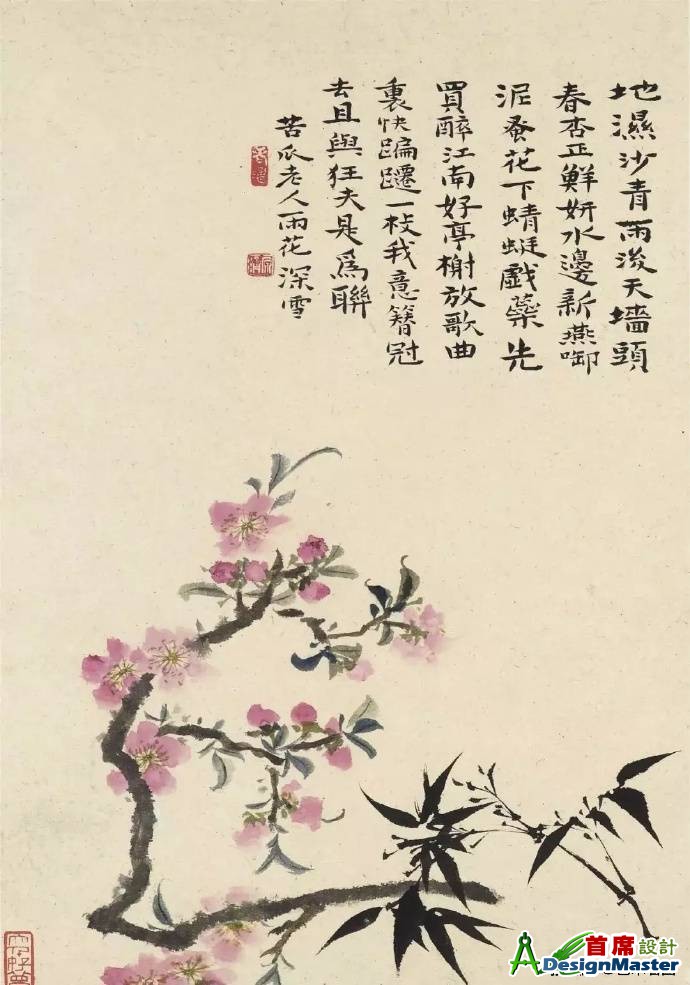 地濕沙青雨後天墻頭
春杏正鮮妍水邊新燕啣
泥蚤花下蜻蜓戯蘂先
買醉江南好亭榭放歌曲
裏快蹁躚一枝我意簪冠
去且與狂夫是爲聯
苦瓜老人雨花深雪
首席設計
DesignMaster